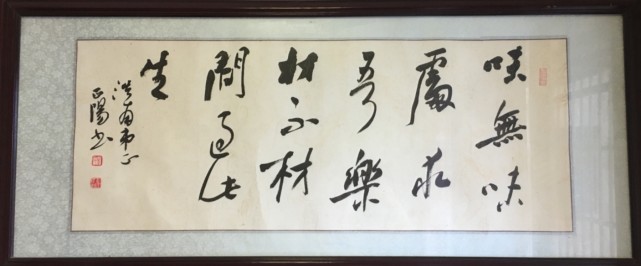 味無味
處求
吾樂
材不材
間過此
生
陽书